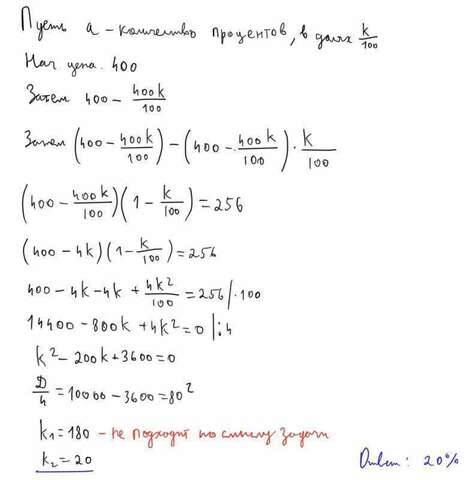 Пусть a - количество процентов, в долях k/100
Нач. цена. 400
Затем 400 - 400k/100
Затем (400 - 400k/100) - (400 - 400k/100) · k/100
(400 - 400k/100)(1 - k/100) = 256
(400 - 4k)(1 - k/100) = 256
400 - 4k - 4k + 4k²/100 = 256 | · 100
14400 - 800k + 4k² = 0 | : 4
k² - 200k + 3600 = 0
D/4 = 10000 - 3600 = 80²
k₁ = 180 - не подходит по смыслу задачи
k₂ = 20 Ответ: 20%